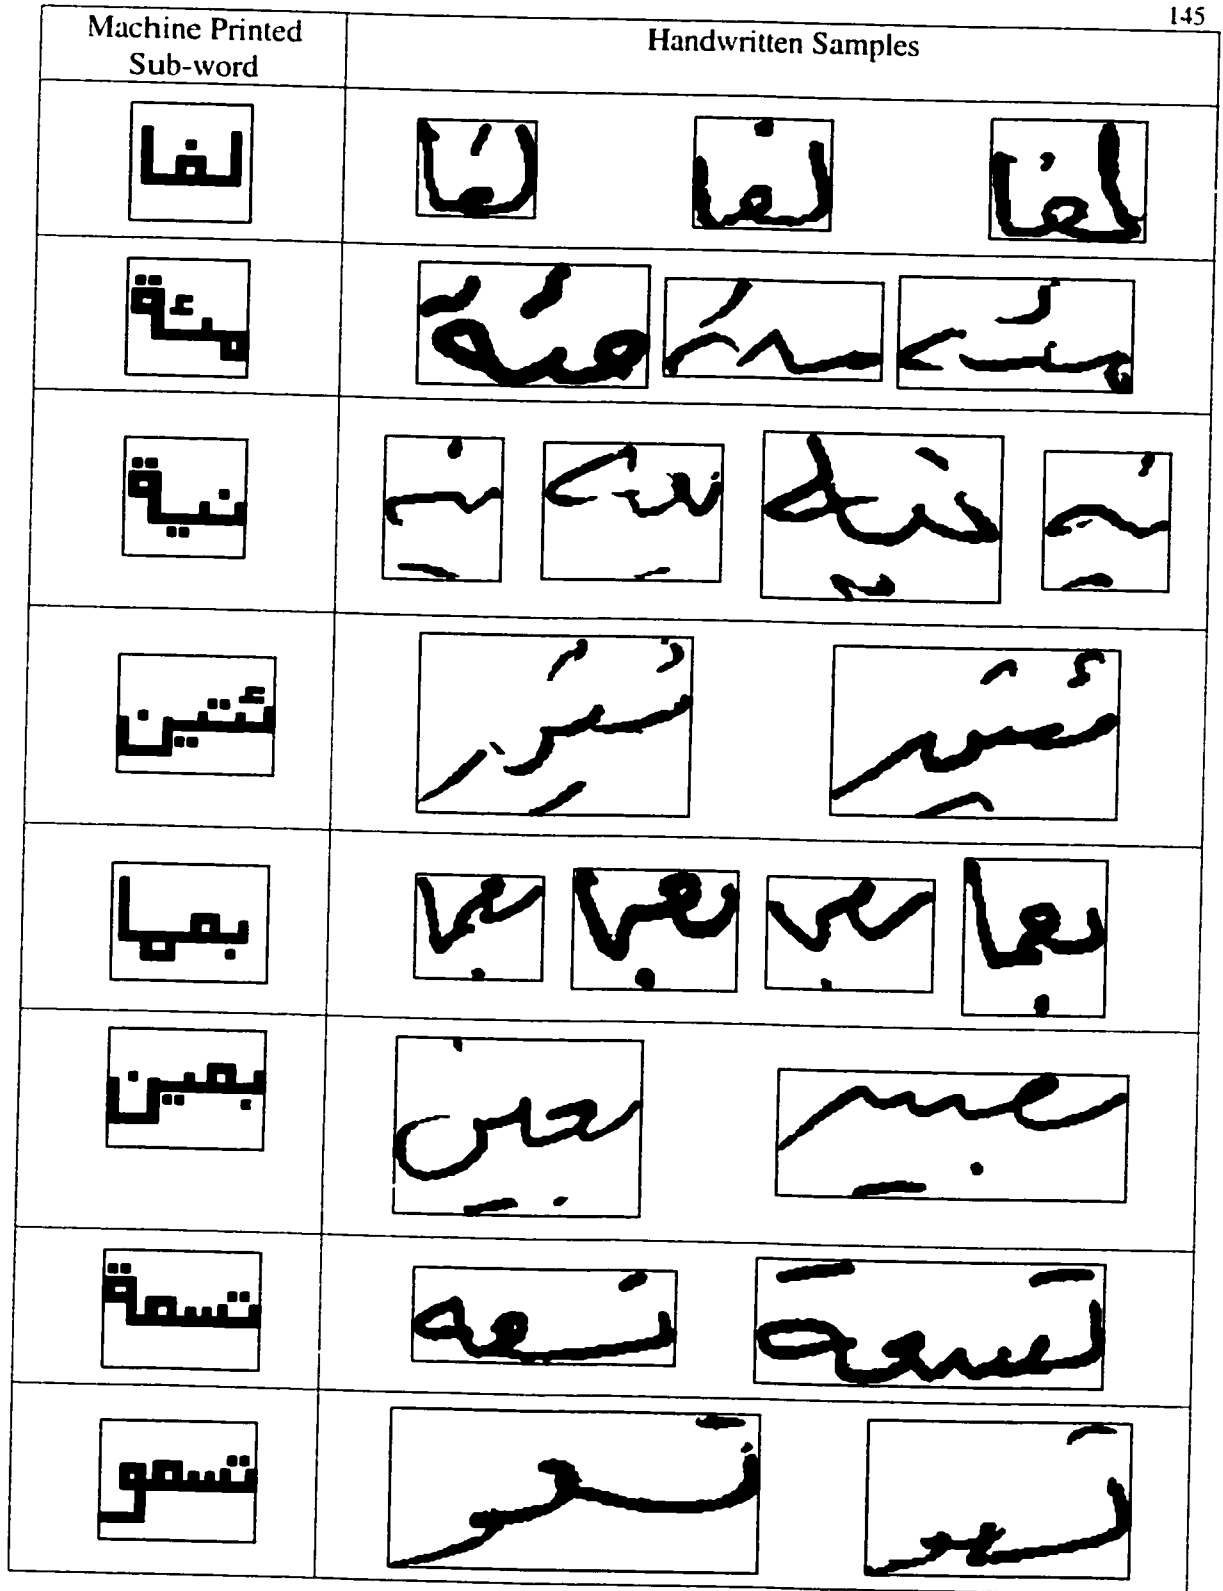 145
Machine Printed
Sub-word
Handwritten Samples
لفا
لفا لفا لفا
مئة
مئة مئة مئة
نية
نية نية نية نية
ئتين
ئتين ئتين
بعما
بعما بعما بعما بعما
بعين
بعين بعين
تسعة
تسعة تسعة
تسعو
تسعو تسعو